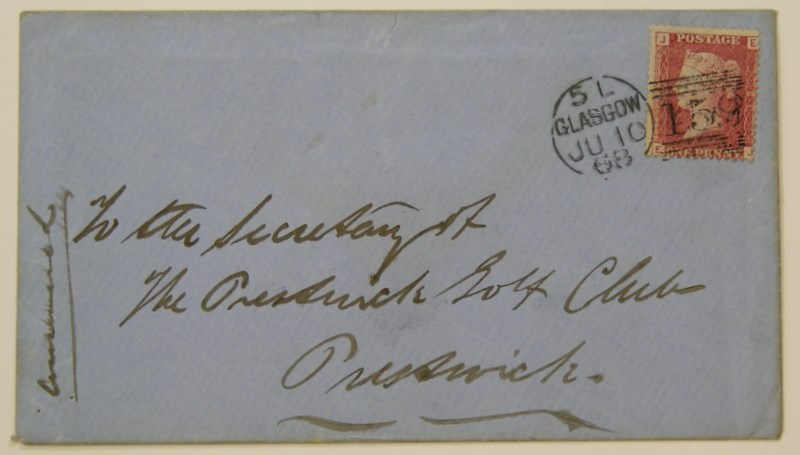 J E
POSTAGE
159
E J
ONE PENNY
5 L
GLASGOW
JU 10
68
To the Secretary of
The Prestwick Golf Club
Prestwick.